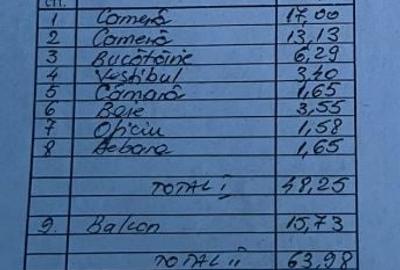 сп.
1 Cameră 17,00
2 Cameră 13,13
3 Bucătărie 6,29
4 Vestibul 3,40
5 Cămară 1,65
6 Baie 3,55
7 Oficiu 1,58
8 Debara 1,65
TOTAL I 48,25
9. Balcon 15,73
TOTAL II 63,98